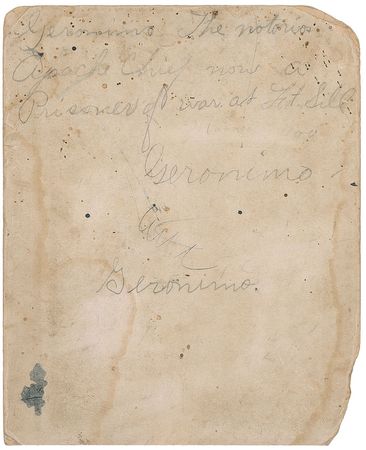 Geronimo The notorios
Apach Chief now a
Prisoner of war at Ft. Sill
Geronimo
Geronimo.